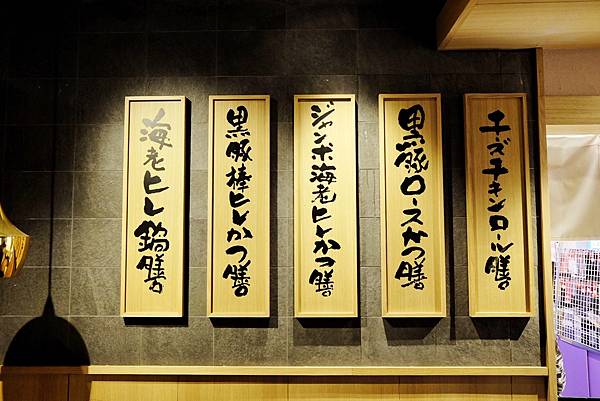 チーズチキンロール膳
黒豚ロースかつ膳
ジャンボ海老ヒレかつ膳
黒豚棒ヒレかつ膳
海老ヒレ鍋膳